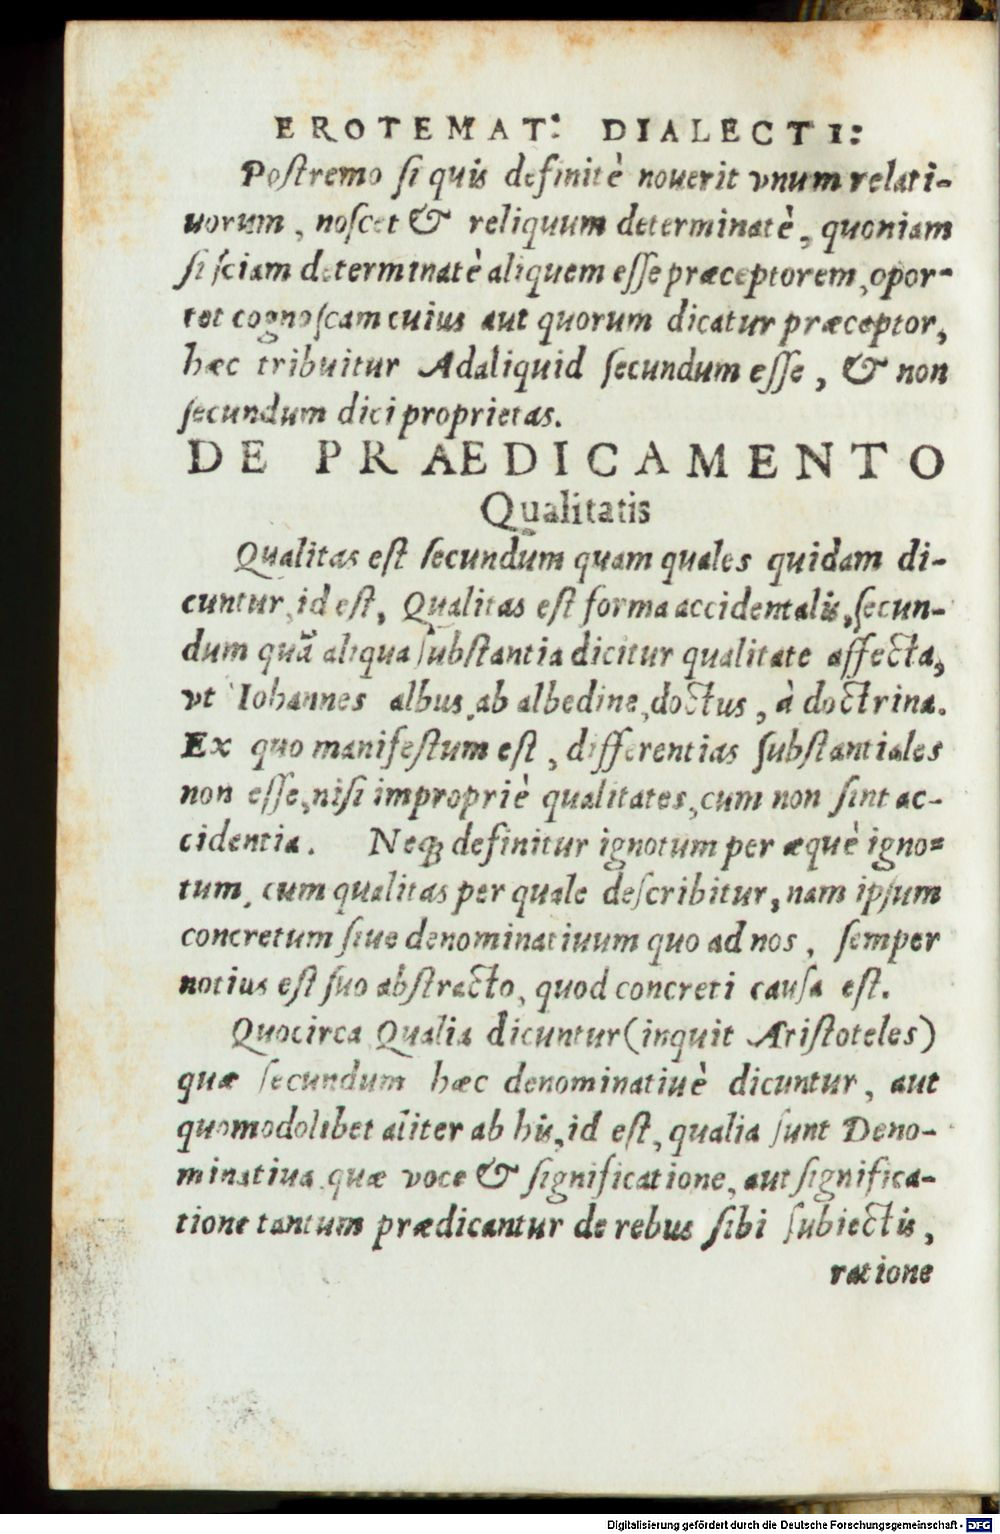 EROTEMAT: DIALECTI:
Poſtremo ſi quis definitè nouerit vnum relati-
uorum, noſcet & reliquum determinatè, quoniam
ſi ſciam determinatè aliquem eſſe præceptorem, opor-
tet cognoſcam cuius aut quorum dicatur præceptor,
hæc tribuitur Adaliquid ſecundum eſſe, & non
ſecundum dici proprietas.
DE PRAEDICAMENTO
Qualitatis
Qualitas eſt ſecundum quam quales quidam di-
cuntur, id eſt, Qualitas eſt forma accidentalis, ſecun-
dum quā aliqua ſubſtantia dicitur qualitate affecta,
vt Iohannes albus, ab albedine, doctus, à doctrina.
Ex quo manifeſtum eſt, differentias ſubſtantiales
non eſſe, niſi impropriè qualitates, cum non ſint ac-
cidentia. Neqꝫ definitur ignotum per æquè igno-
tum, cum qualitas per quale deſcribitur, nam ipſum
concretum ſiue denominatiuum quo ad nos, ſemper
notius eſt ſuo abſtracto, quod concreti cauſa eſt.
Quocirca Qualia dicuntur (inquit Ariſtoteles)
quæ ſecundum hæc denominatiuè dicuntur, aut
quomodolibet aliter ab his, id eſt, qualia ſunt Deno-
minatiua, quæ voce & ſignificatione, aut ſignifica-
tione tantum prædicantur de rebus ſibi ſubiectis,
ratione
Digitalisierung gefördert durch die Deutsche Forschungsgemeinschaft - DFG